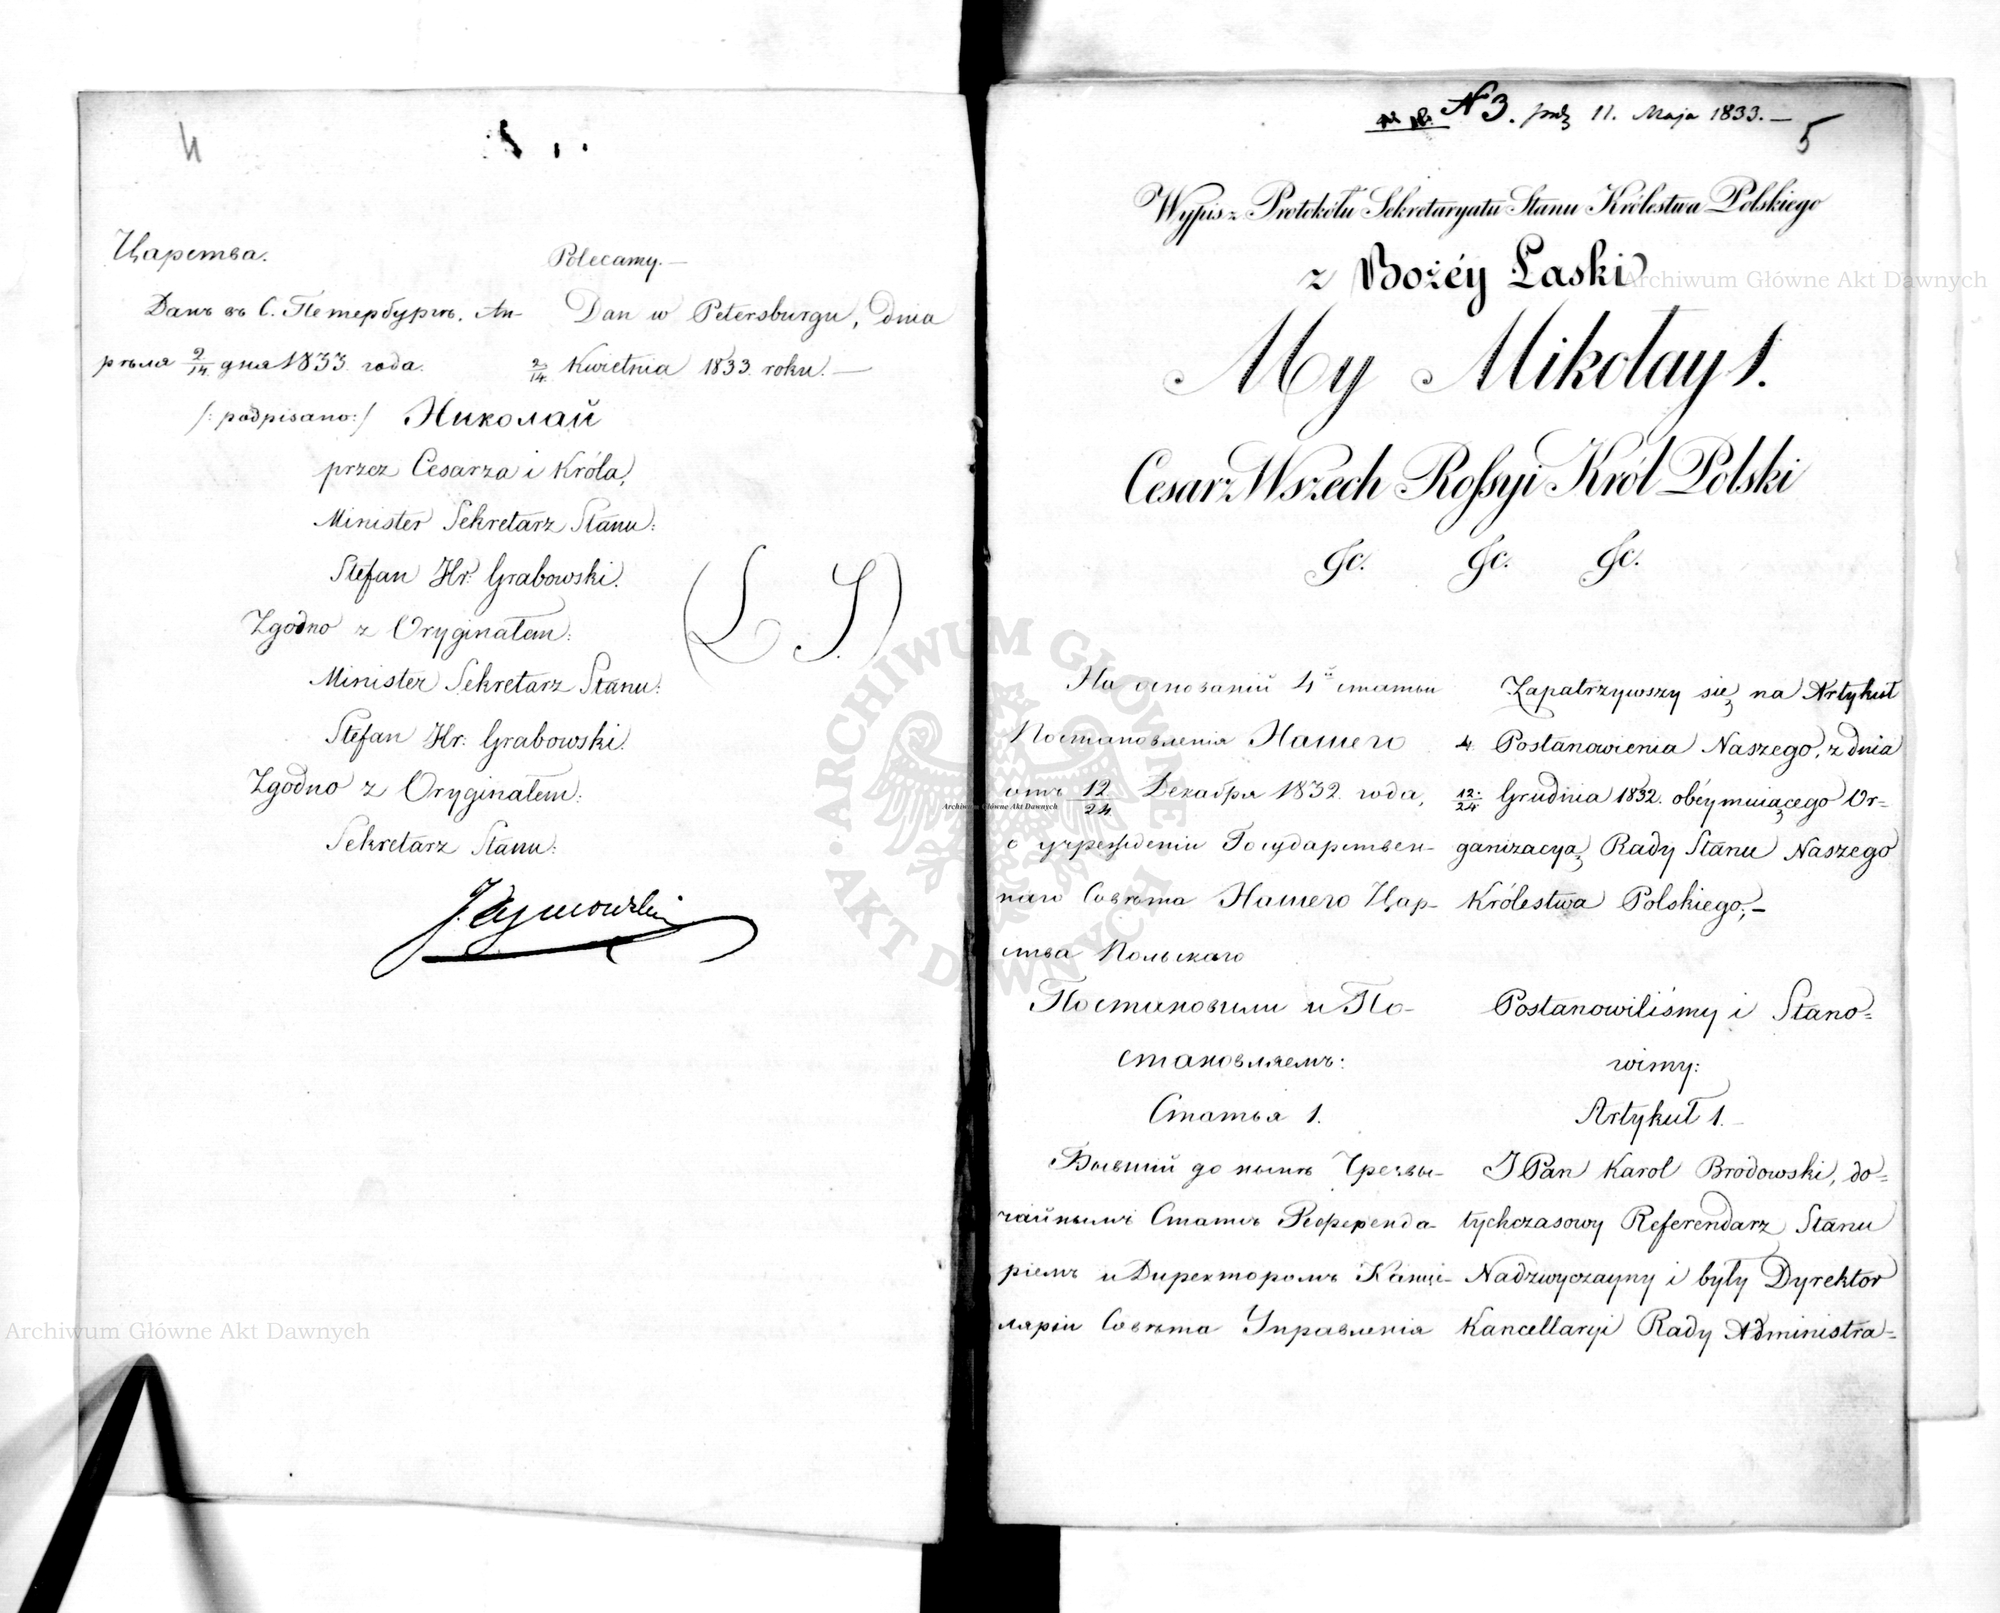 4
Царства.
Данъ въ С. Петербургѣ, Ап-
рѣля 2/14 дня 1833 года.
Polecamy. —
Dan w Petersburgu, dnia
2/14. Kwietnia 1833. roku. —
/: podpisano :/ Николай
przez Cesarza i Króla,
Minister Sekretarz Stanu:
Stefan Hr. Grabowski.
(L. S.)
Zgodno z Oryginałem:
Minister Sekretarz Stanu:
Stefan Hr: Grabowski.
Zgodno z Oryginałem:
Sekretarz Stanu:
N 3. 11. Maja 1833. —
5
Wypis z Protokółu Sekretaryatu Stanu Królestwa Polskiego
z Bożéy Łaski
My Mikołay 1.
Cesarz Wszech Rossyi Król Polski
&c. &c. &c.
На основаніи 4й статьи
Постановленія Нашего
отъ 12/24 Декабря 1832. года,
о учрежденіи Государствен-
наго Совѣта Нашего Цар-
ства Польскаго
Постановили и По-
становляемъ:
Статья 1.
Бывшій до нынѣ Чрезвы-
чайнымъ Статсъ Референда-
ріемъ и Директоромъ Канце-
ляріи Совѣта Управленія
Zapatrzywszy się na Artykuł
4. Postanowienia Naszego, z dnia
12/24 Grudnia 1832. obeymuiącego Or-
ganizacyą Rady Stanu Naszego
Królestwa Polskiego; —
Postanowiliśmy i Stano-
wimy:
Artykuł 1. —
JPan Karol Brodowski, do-
tychczasowy Referendarz Stanu
Nadzwyczayny i były Dyrektor
Kancellaryi Rady Administra-
Archiwum Główne Akt Dawnych
Archiwum Główne Akt Dawnych
Archiwum Główne Akt Dawnych
ARCHIWUM GŁÓWNE • AKT DAWNYCH •